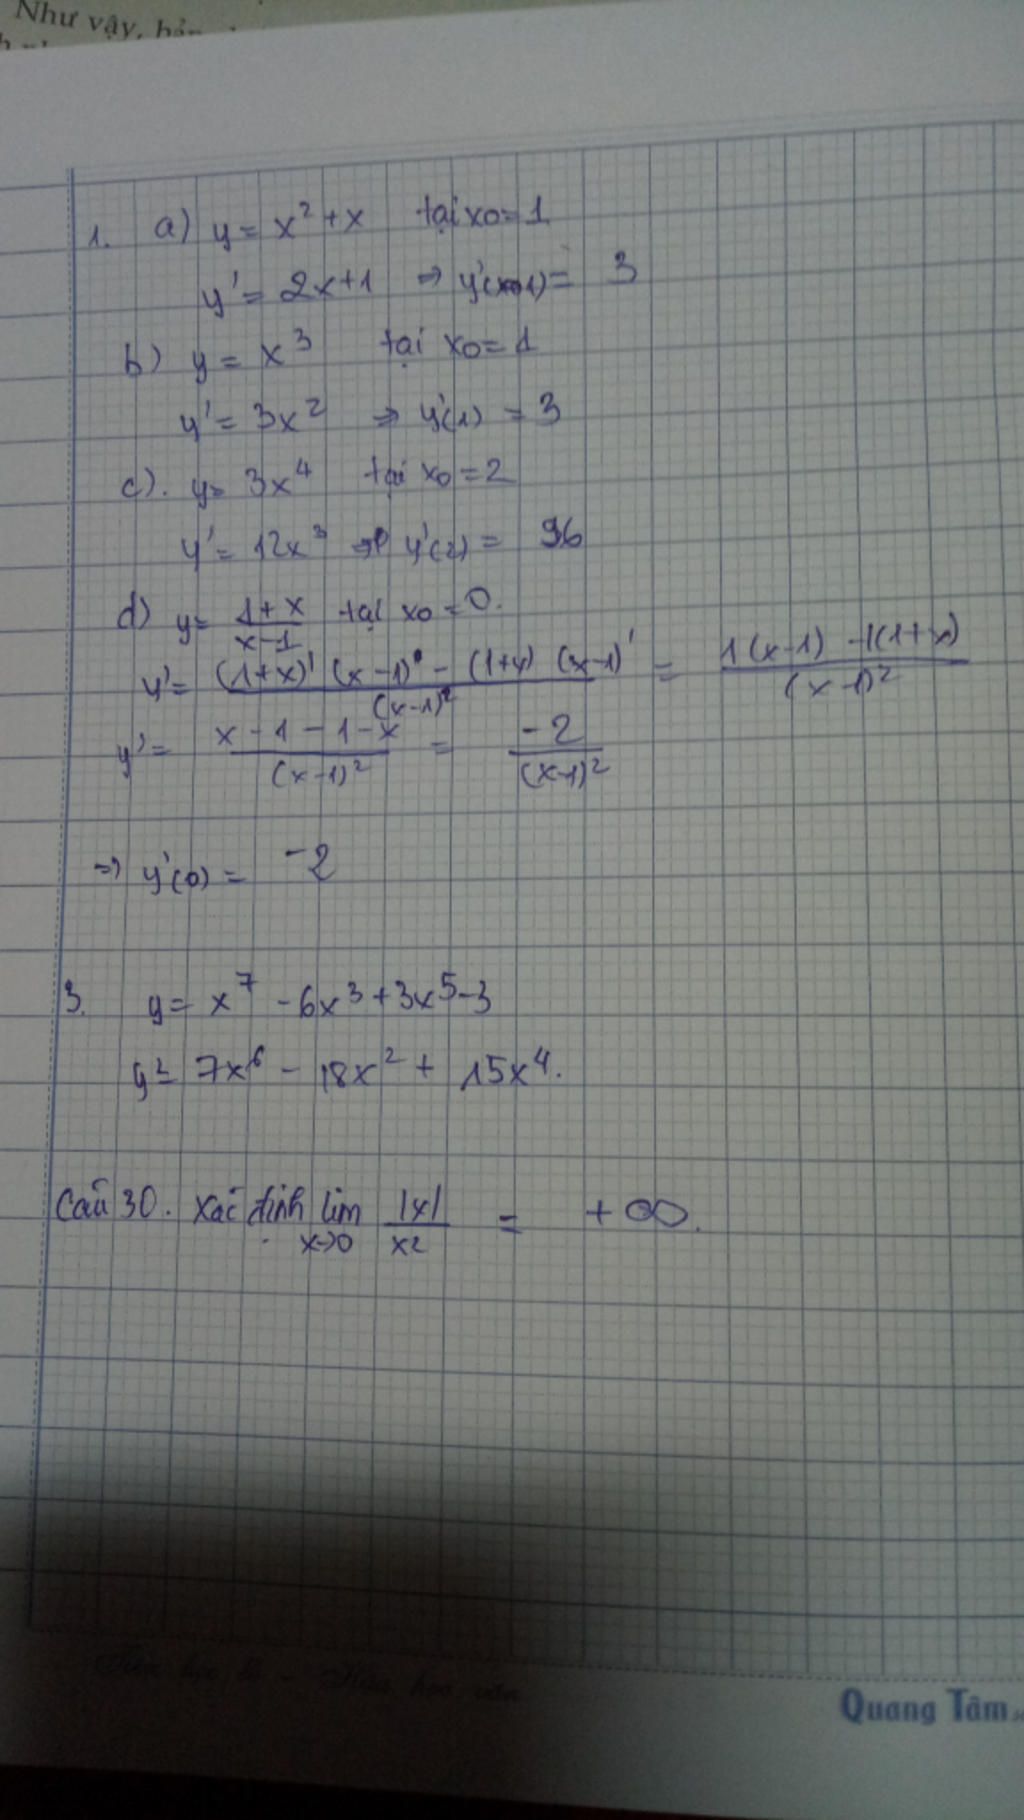 Như vậy,
1. a) y = x² + x tại x0 = 1
y' = 2x+1 ⇒ y'(1) = 3
b) y = x³ tại x0 = 1
y' = 3x² ⇒ y'(1) = 3
c). y = 3x⁴ tại x0 = 2
y' = 12x³ ⇒ y'(2) = 96
d) y = (1+x)/(x-1) tại x0 = 0.
y' = ((1+x)' (x-1) - (1+x) (x-1)')/(x-1)² = (1(x-1) -1(1+x))/(x-1)²
y' = (x-1-1-x)/(x-1)² = -2/(x-1)²
⇒ y'(0) = -2
3. y = x⁷ - 6x³ + 3x⁵ - 3
y' = 7x⁶ - 18x² + 15x⁴.
Câu 30. Xác định lim x→0 |x|/x2 = +∞.
Tiên học lễ - Hậu học văn
Quang Tâm